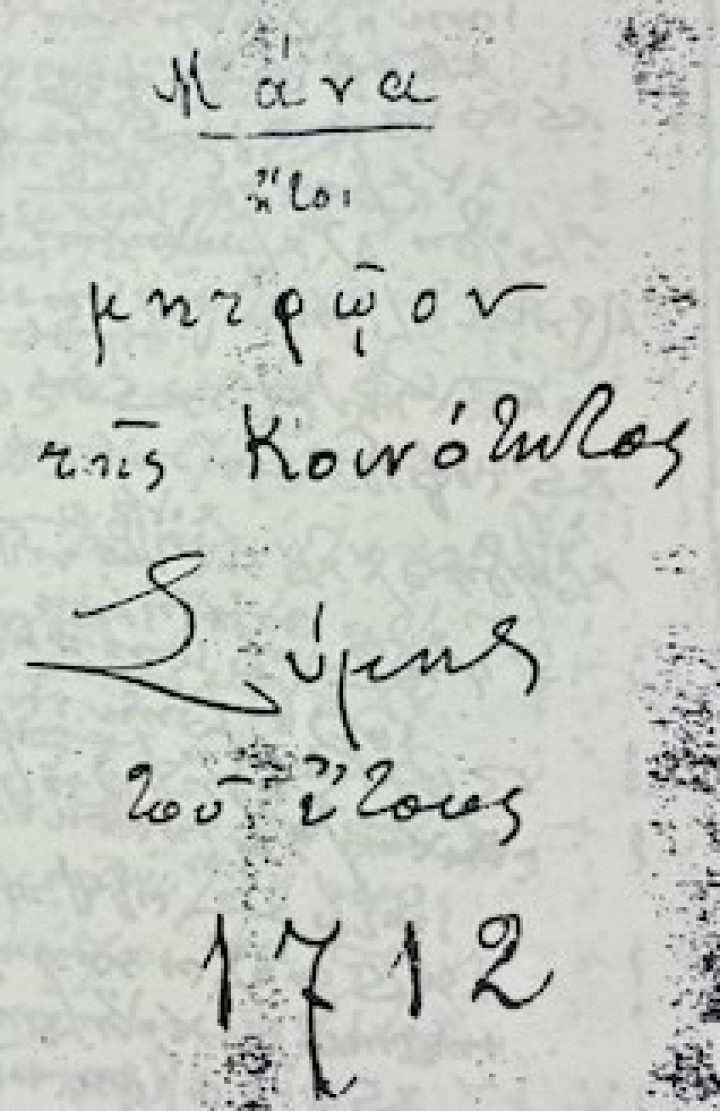 Μάνα
ἤτοι
μητρῷον
τῆς Κοινότητος
Σύμης
τοῦ ἔτους
1712